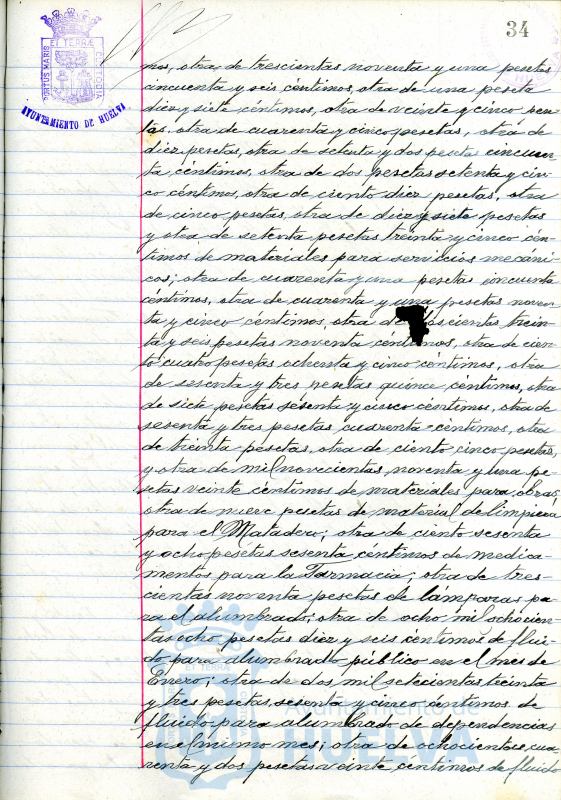 34
PORTUS MARIS ET TERRÆ CUSTODIA
AYUNTAMIENTO DE HUELVA
nos, otra de trescientas noventa y una pesetas
cincuenta y seis céntimos, otra de una peseta
diez y siete céntimos, otra de veinte y cinco pese
tas, otra de cuarenta y cinco pesetas, otra de
diez pesetas, otra de setenta y dos pesetas cincuen
ta céntimos, otra de dos pesetas setenta y cin
co céntimos, otra de ciento diez pesetas, otra
de cinco pesetas, otra de diez y siete pesetas
y otra de setenta pesetas treinta y cinco cén
timos de materiales para servicios mecáni
cos; otra de cuarenta y una pesetas cincuenta
céntimos, otra de cuarenta y una pesetas noven
ta y cinco céntimos, otra de doscientas trein
ta y seis pesetas noventa céntimos, otra de cien
to cuatro pesetas ochenta y cinco céntimos, otra
de sesenta y tres pesetas quince céntimos, otra
de siete pesetas sesenta y cinco céntimos, otra de
sesenta y tres pesetas cuarenta céntimos, otra
de treinta pesetas, otra de ciento cinco pesetas,
y otra de mil novecientas noventa y una pe
setas veinte céntimos de materiales para obras;
otra de nueve pesetas de material de limpieza
para el Matadero; otra de ciento sesenta
y ocho pesetas sesenta céntimos de medica
mentos para la Farmacia; otra de tres-
cientas noventa pesetas de lámparas pa
ra el alumbrado; otra de ocho mil ochocien
tas ocho pesetas diez y seis céntimos de flui
do para alumbrado público en el mes de
Enero; otra de dos mil setecientas treinta
y tres pesetas sesenta y cinco céntimos de
fluido para alumbrado de dependencias
en el mismo mes; otra de ochocientas cua
renta y dos pesetas veinte céntimos de fluido
Ayuntamiento de
HUELVA